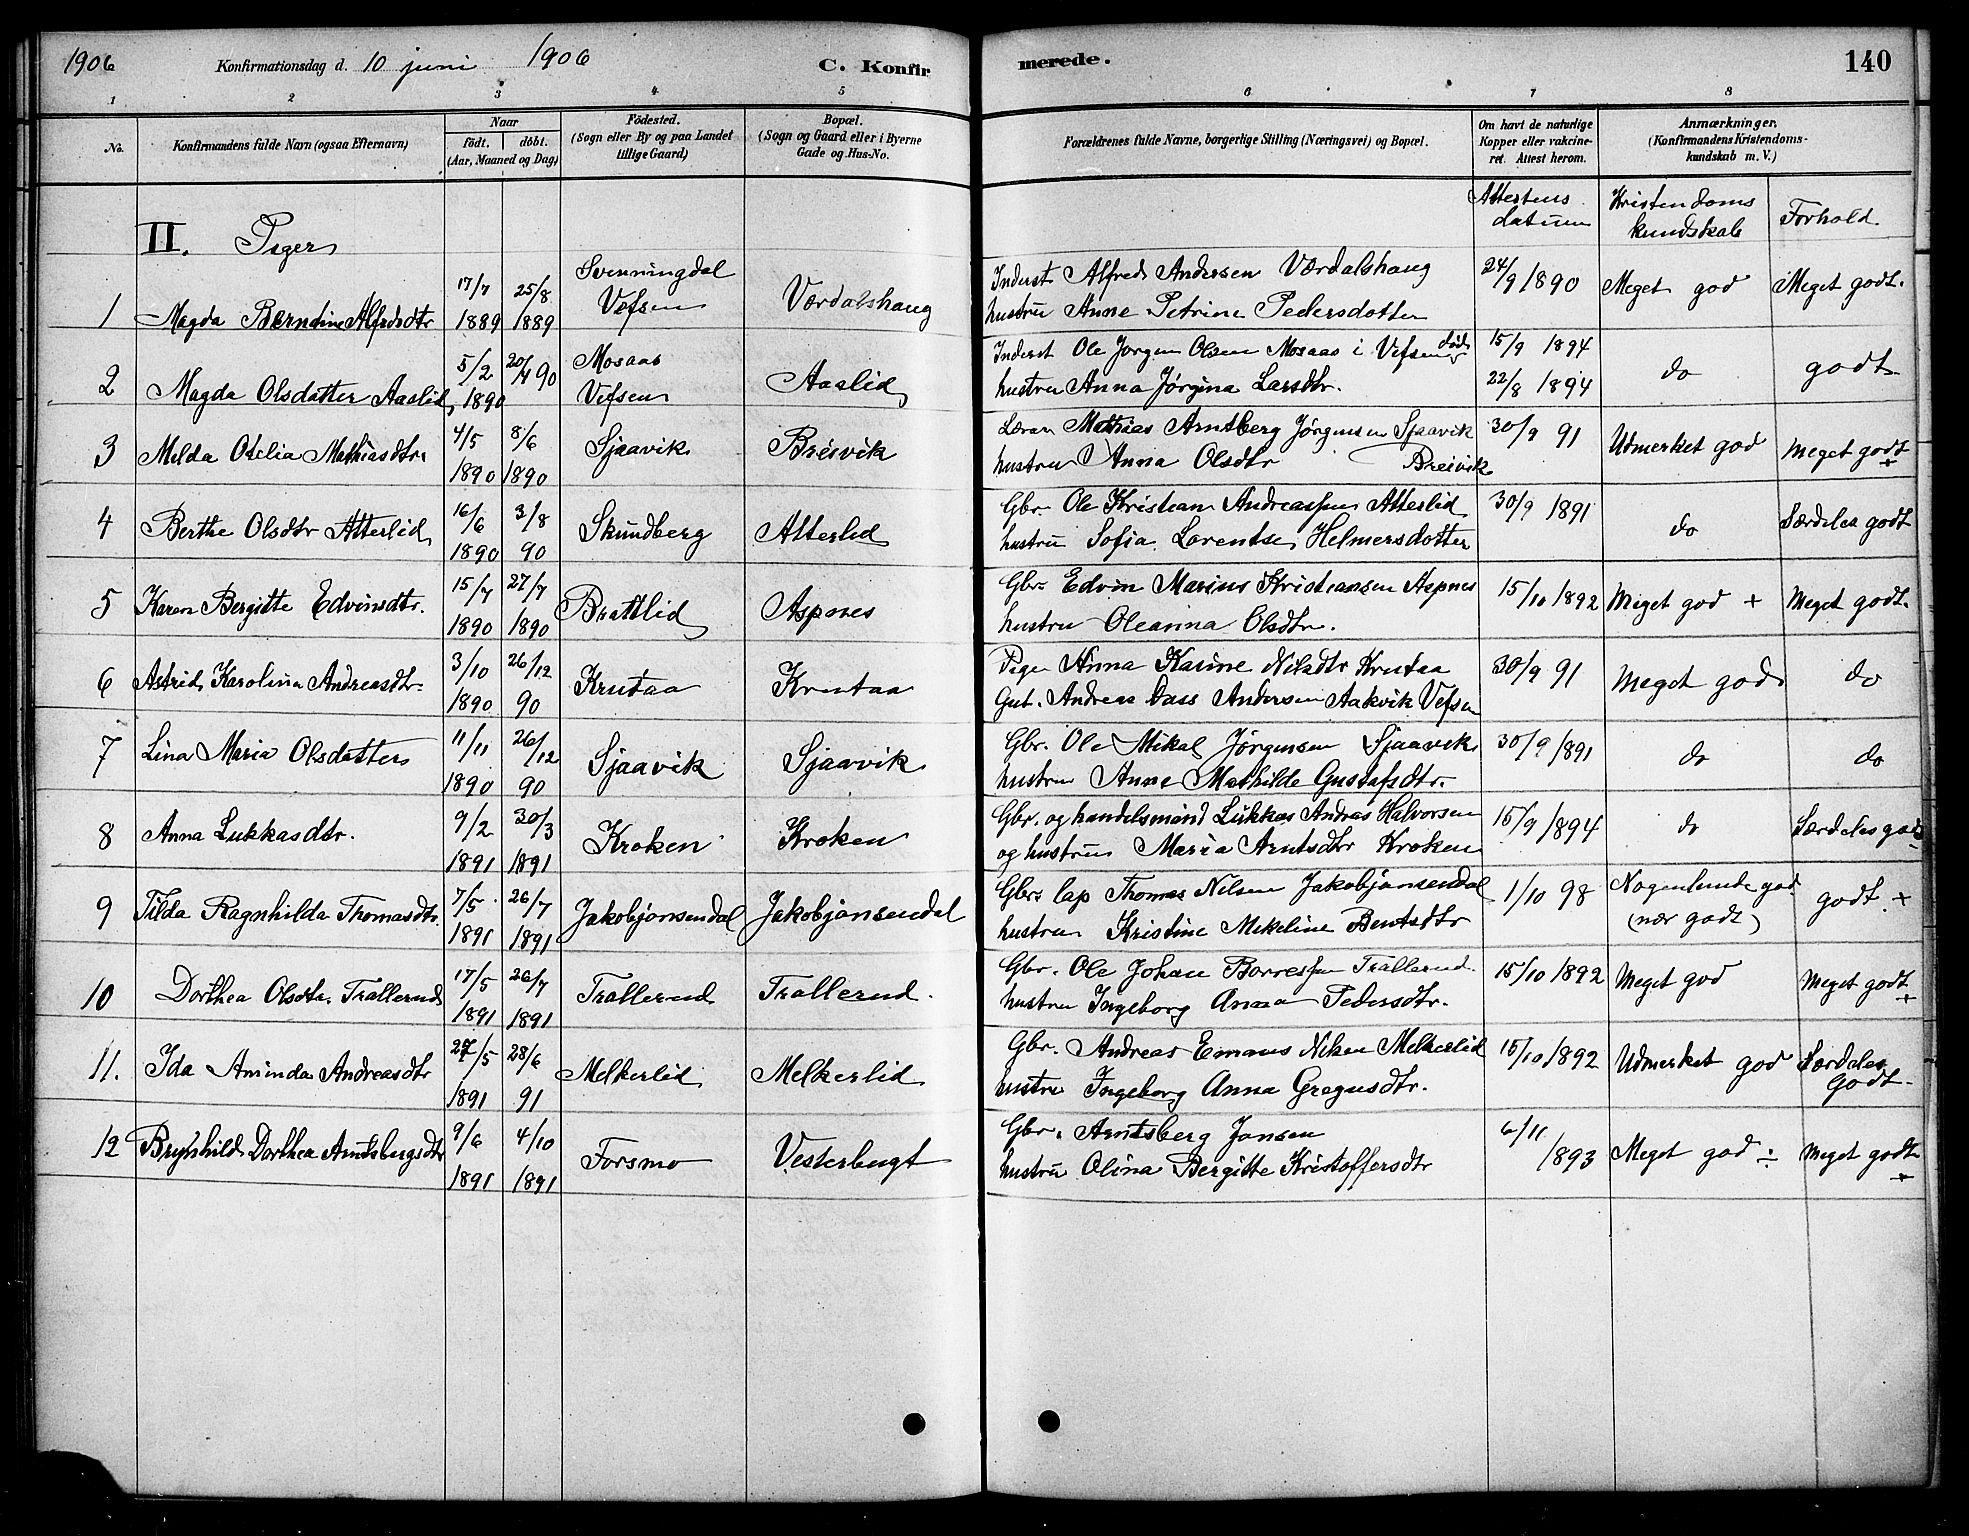 1906 Konfirmationsdag d. 10 juni 1906 C. Konfirmerede. 140
1 2 3 4 5 6 7 8
No. Konfirmandens fulde Navn (ogsaa Efternavn) Naar født. døbt. (Aar, Maaned og Dag) Fødested. (Sogn eller By og paa Landet tillige Gaard) Bopæl. (Sogn og Gaard eller i Byerne Gade og Hus-No. Forældrenes fulde Navne, borgerlige Stilling (Næringsvei) og Bopæl. Om havt de naturlige Kopper eller vakcineret. Attest herom. Anmærkninger. (Konfirmandens Kristendomskundskab m. V.)
Attestens datum Kristendoms kundskab Forhold.
II. Piger
1 Magda Berndine Alfredsdtr 17/7 1889 25/8 1889 Svenningdal Vefsen Værdalshaug Inderst Alfred Andersen Værdalshaug
hustru Anne Petrine Pedersdotter 24/9 1890 Meget god Meget godt.
2 Magda Olsdatter Aaslid 5/2 1890 20/4 90 Mosaas Vefsen Aaslid Inderst Ole Jørgen Olsen Mosaas i Vefsen død
hustru Anna Jørgina Larsdtr. 15/9 1894 22/8 1894 do godt
3 Melda Otelia Mathiasdtr 4/5 1890 8/6 1890 Sjaavik Breivik Lærer Mathias Arntberg Jørgensen Sjaavik
hustru Anna Olsdtr Breivik 30/9 91 Udmerket god Meget godt +
4 Berthe Olsdtr Atterlid 16/6 1890 3/8 90 Skundberg Atterlid Gbr. Ole Kristian Andreassen Atterlid
hustru Sofia Lorentse Helmersdotter 30/9 1891 do Særdeles godt
5 Karen Bergitte Edvinsdtr. 15/7 1890 27/7 1890 Brattlid Aspnes Gbr. Edvin Marius Kristiansen Aspnes
hustru Oleanna Olsdtr. 15/10 1892 Meget god + Meget godt.
6 Astrid Karolina Andreasdtr. 3/10 1890 26/12 90 Krutaa Krutaa Pige Anna Karine Nilsdtr Krutaa
Gut. Andreas Dass Andersen Aakvik Vefsen 30/9 91 Meget god do
7 Lina Maria Olsdatter 11/11 1890 26/12 90 Sjaavik Sjaavik Gbr. Ole Mikal Jørgensen Sjaavik
hustru Anne Mathilde Gustafsdtr. 30/9 1891 do do
8 Anna Lukkasdtr. 9/2 1891 30/3 1891 Kroken Kroken Gbr. og handelsmand Lukkas Andreas Halvorsen
og hustru Maria Arntsdtr Kroken 15/9 1894 do Særdeles godt
9 Tilda Ragnhilda Thomasdtr. 7/5 1891 26/7 1891 Jakobjonsendal Jakobjonsendal Gbr. lap Thomas Nilsen Jakobjonsendal
hustru Kristine Mekeline Bentsdtr 1/10 98 Nogenlunde god (nær godt) godt +
10 Dorthea Olsdtr. Trallerud 17/5 1891 26/7 1891 Trallerud Trallerud. Gbr. Ole Johan Borressen Trallerud.
hustru Ingeborg Anna Pedersdtr. 15/10 1892 Meget god Meget godt +
11. Ida Aminda Andreasdtr 27/5 1891 28/6 91 Melkerlid Melkerlid Gbr. Andreas Emaus Nilsen Melkerlid
hustru Ingeborg Anna Gregusdtr. 15/10 1892 Udmerket god Særdeles godt.
12 Brynhild Dorthea Arntsbergsdtr 9/6 1891 4/10 1891 Forsmo Vesterbugt Gbr. Arntsberg Jonsen
hustru Olina Bergitte Kristoffersdtr 6/11 1893 Meget god ÷ Meget godt +